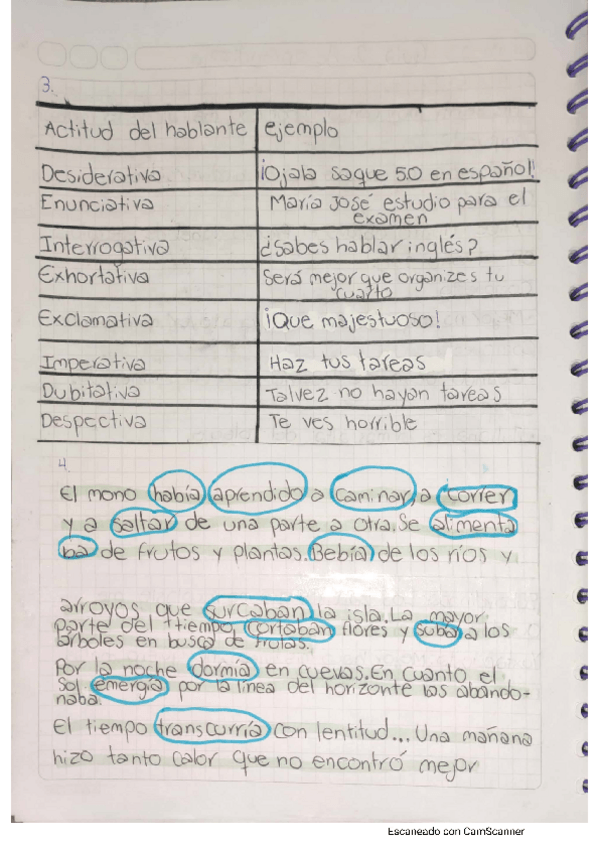 3.
Actitud del hablante ejemplo
Desiderativa ¡Ojala saque 5.0 en español!
Enunciativa María José estudio para el
examen
Interrogativa ¿Sabes hablar inglés?
Exhortativa Será mejor que organizes tu
cuarto
Exclamativa ¡Que majestuoso!
Imperativa Haz tus tareas
Dubitativa Talvez no hayan tareas
Despectiva Te ves horrible
4.
El mono había aprendido a caminar, a correr
y a saltar de una parte a otra. Se alimenta
ba de frutos y plantas. Bebía de los ríos y
arroyos que surcaban la isla. La mayor
parte del tiempo cortaban flores y suba a los
árboles en busca de frutas.
Por la noche dormía en cuevas. En cuanto el
Sol emergía por la línea del horizonte las abando-
naba.
El tiempo transcurría con lentitud... Una mañana
hizo tanto calor que no encontró mejor
Escaneado con CamScanner